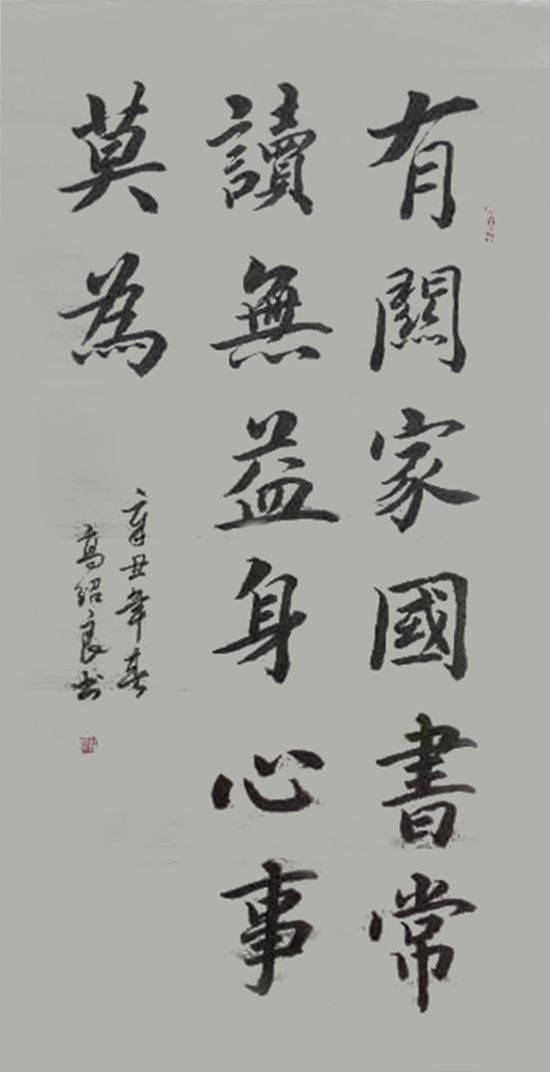 有關家國書常
讀無益身心事
莫為
辛丑年春
高紹良书